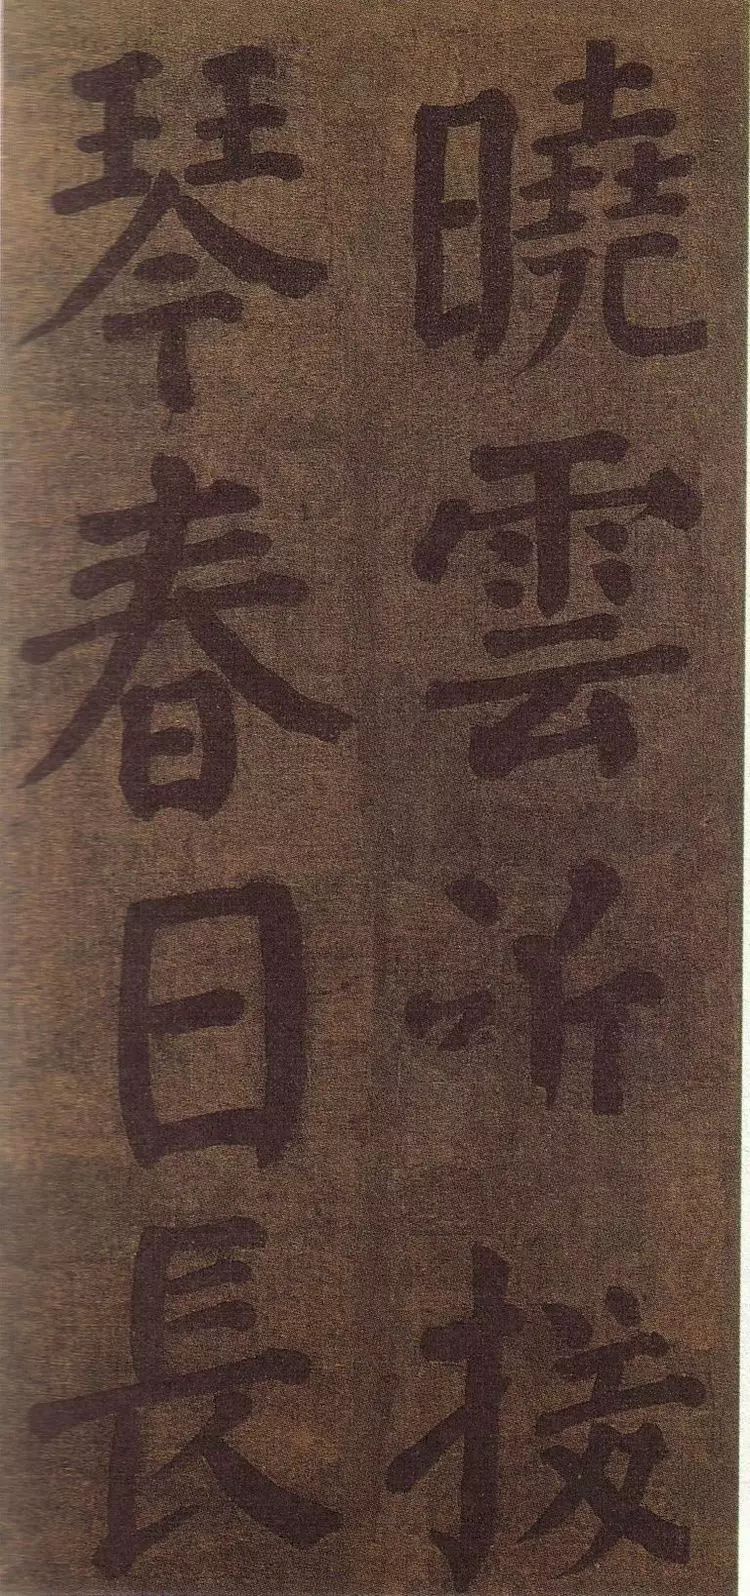 曉雲所接
琴春日長